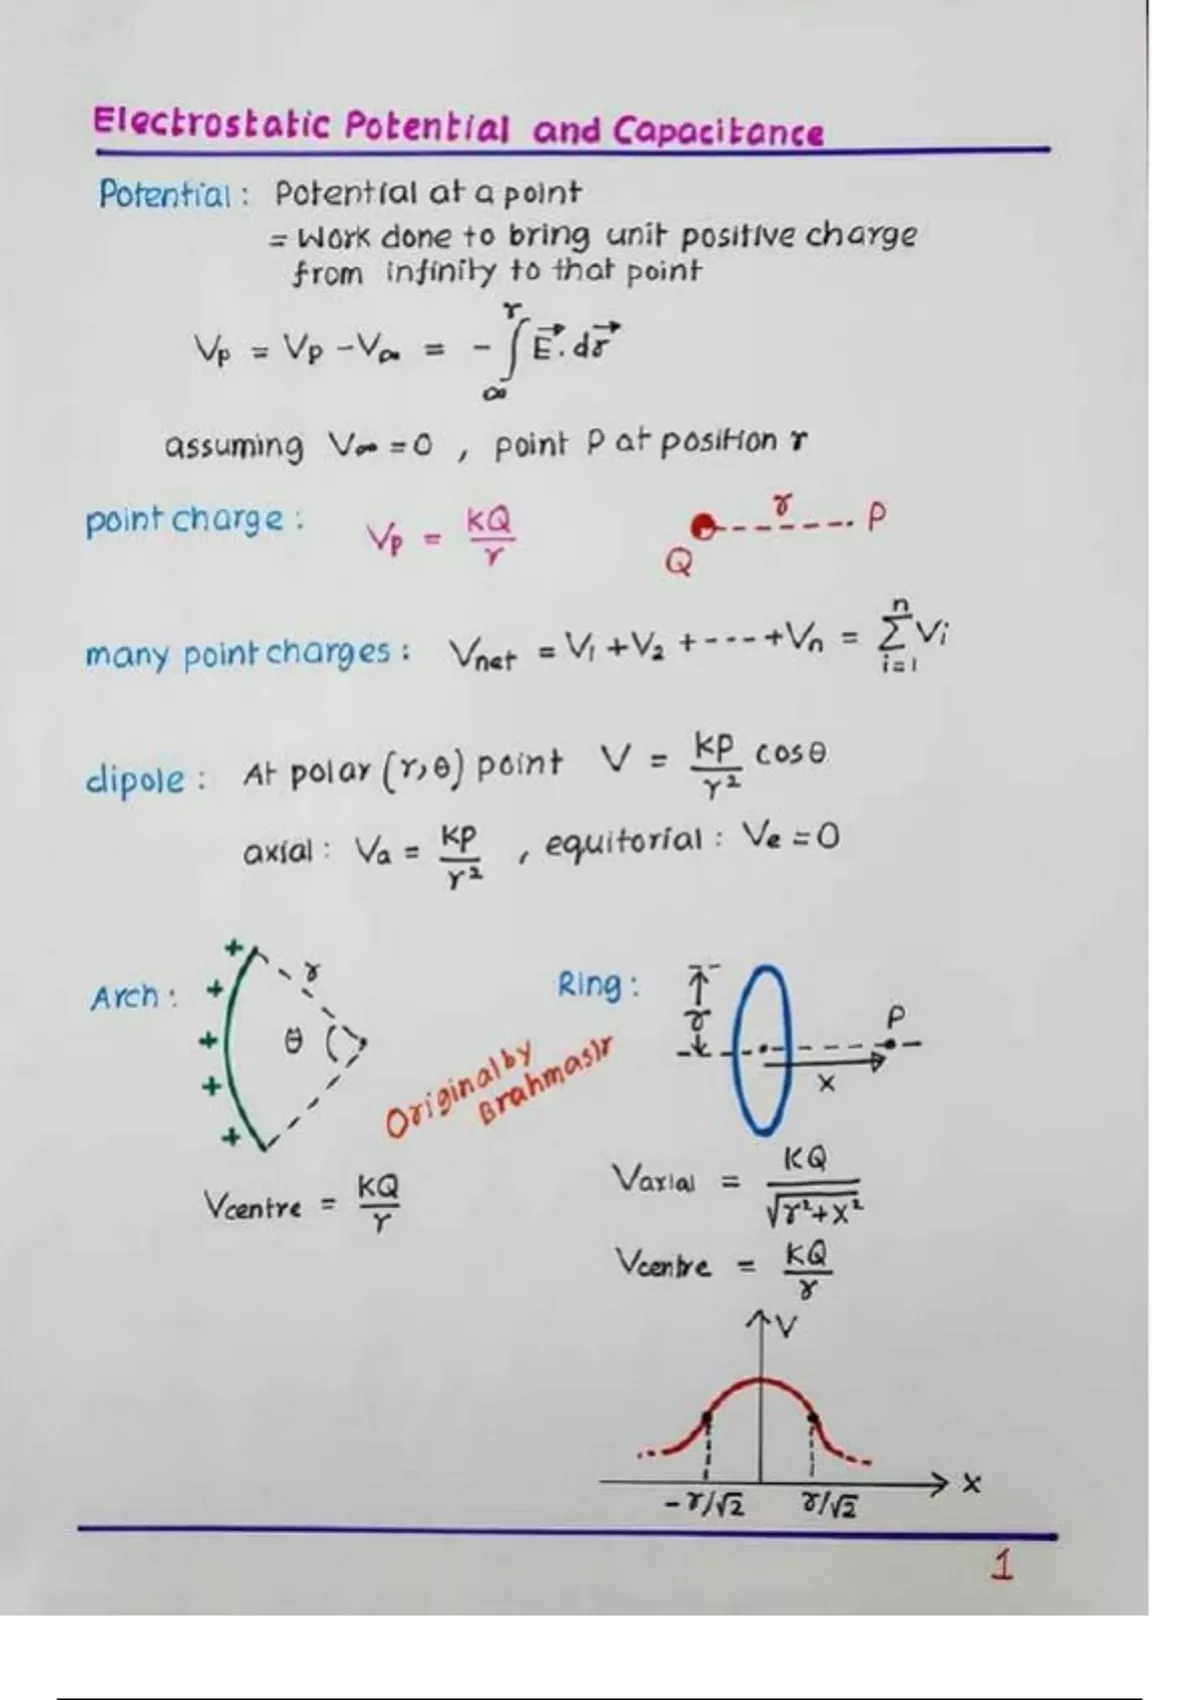 Electrostatic Potential and Capacitance
Potential : Potential at a point
= Work done to bring unit positive charge
from infinity to that point
Vp = Vp - V∞ = - ∫_∞^r E⃗ . dr⃗
assuming V∞ = 0 , point P at position r
point charge : Vp = kQ/r
r
P
Q
many point charges : Vnet = V1 + V2 + ---- + Vn = Σ_{i=1}^{n} Vi
dipole : At polar (r,θ) point V = kp/r² cosθ
axial : Va = kp/r² , equitorial : Ve = 0
Arch :
+
+
+
+
+
r
θ
Vcentre = kQ/r
Original by
Brahmasir
Ring :
r
P
x
Vaxial = KQ/√r²+x²
Vcentre = KQ/r
V
x
-r/√2 r/√2
1